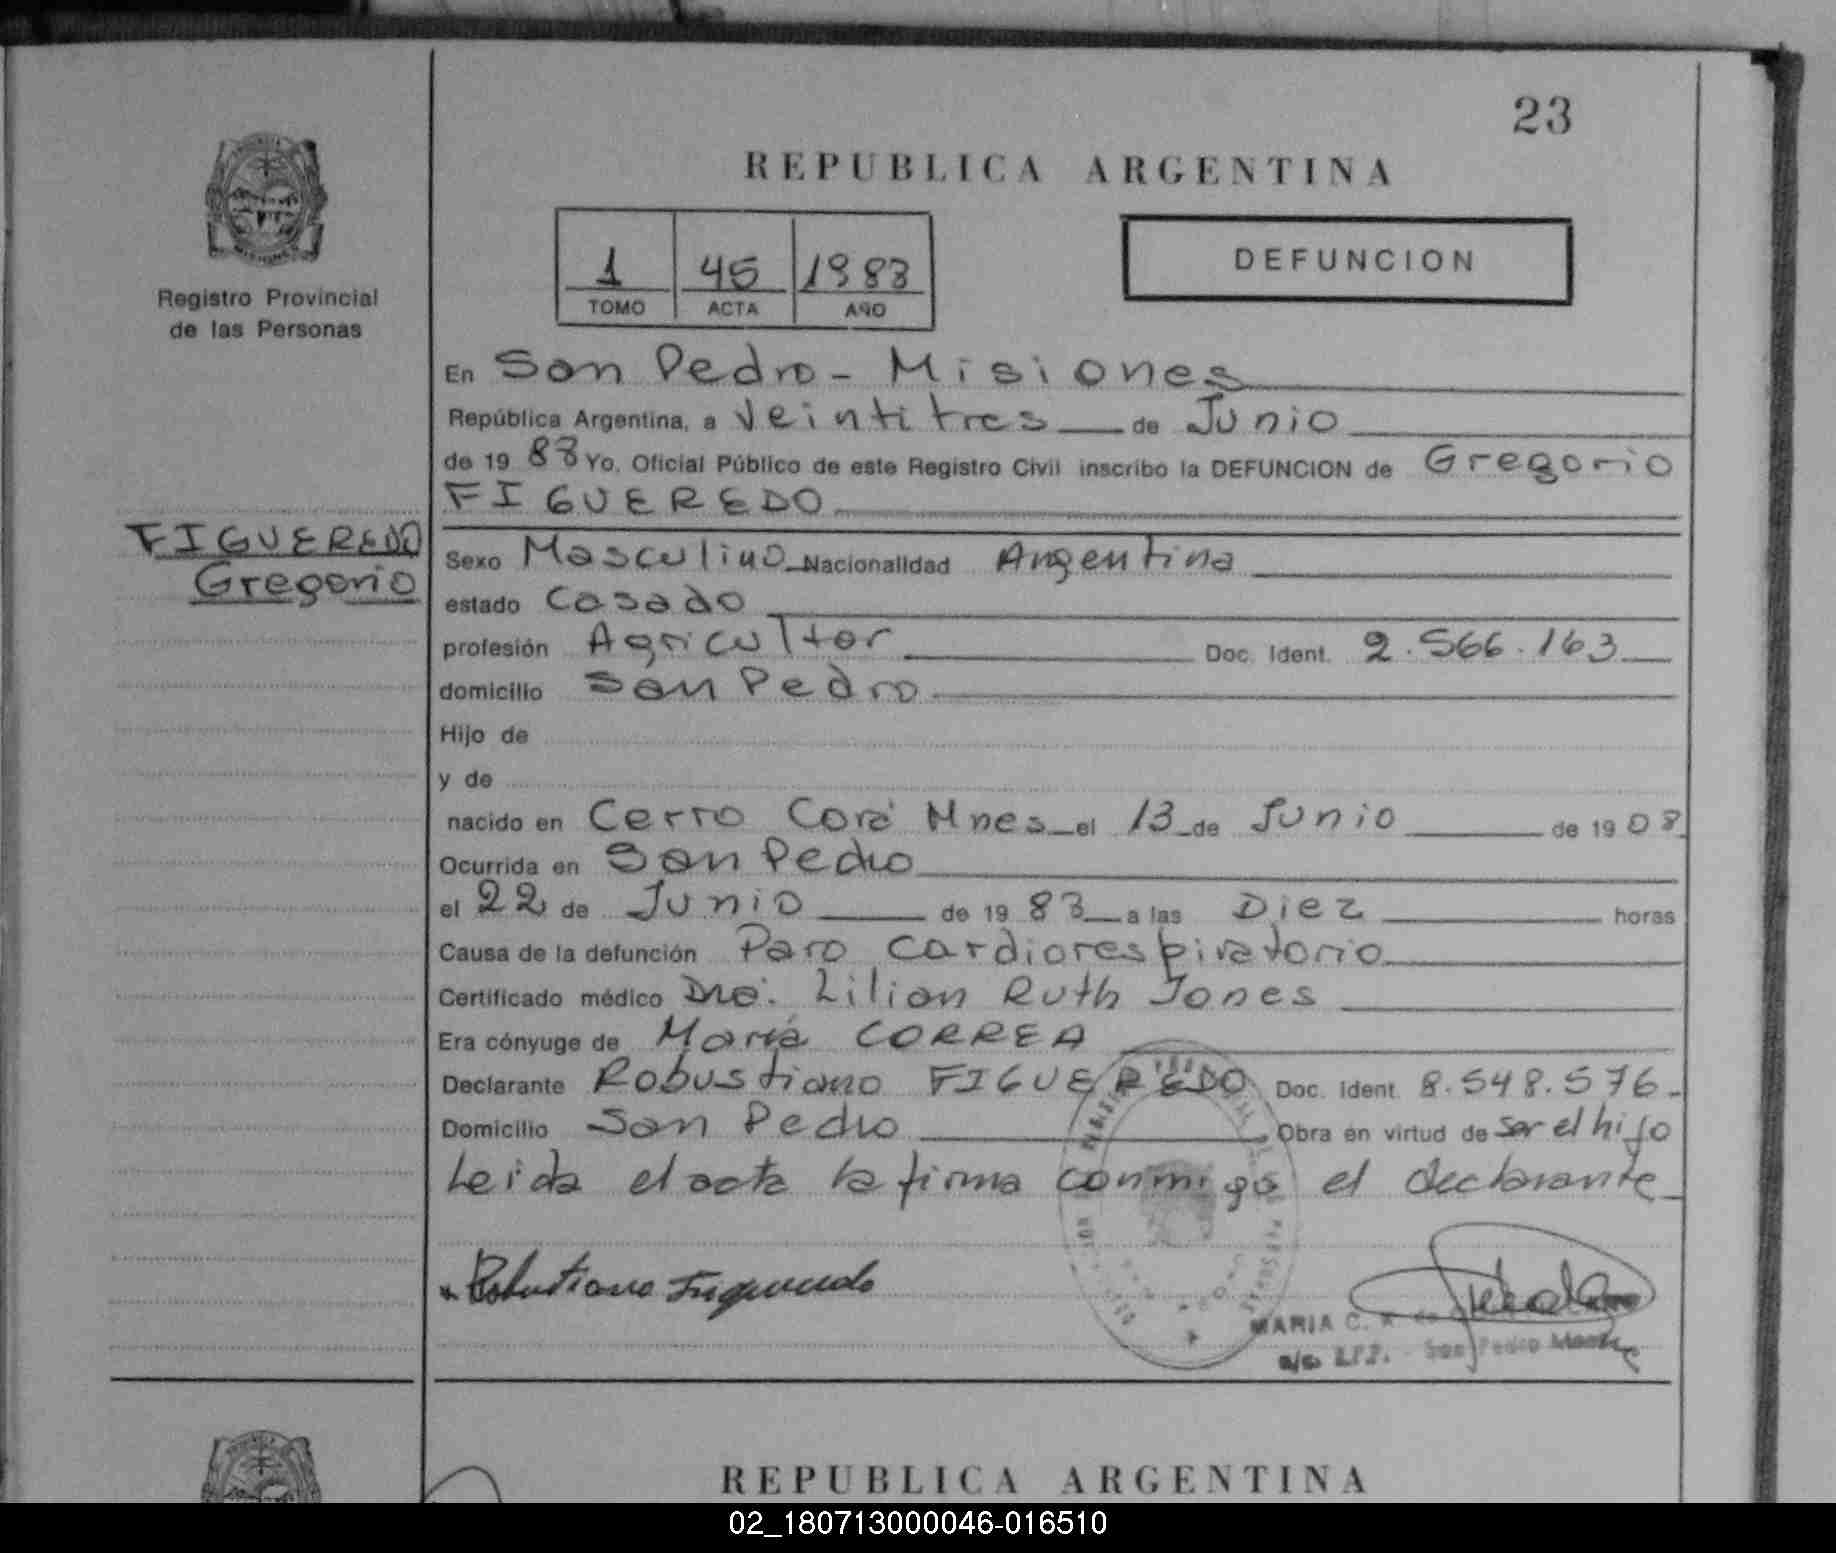 23
REPUBLICA ARGENTINA
Registro Provincial
de las Personas
1 45 1983
TOMO ACTA AÑO
DEFUNCION
En San Pedro - Misiones
República Argentina, a Veintitres de Junio
de 19 83 Yo, Oficial Público de este Registro Civil inscribo la DEFUNCION de Gregorio
FIGUEREDO
FIGUEREDO
Gregorio
Sexo Masculino Nacionalidad Argentina
estado Casado
profesión Agricultor Doc. Ident. 2.566.163
domicilio San Pedro
Hijo de
y de
nacido en Cerro Corá Mnes el 13 de Junio de 19 08
Ocurrida en San Pedro
el 22 de Junio de 19 83 a las Diez horas
Causa de la defunción Paro cardiorespiratorio
Certificado médico Dra. Lilian Ruth Jones
Era cónyuge de María CORREA
Declarante Robustiano FIGUEREDO Doc. Ident. 8.548.576.
Domicilio San Pedro Obra en virtud de ser el hijo
Leida el acta la firma conmigo el declarante
Robustiano Figueredo
MARIA C.
San Pedro
REPUBLICA ARGENTINA
02_180713000046-016510